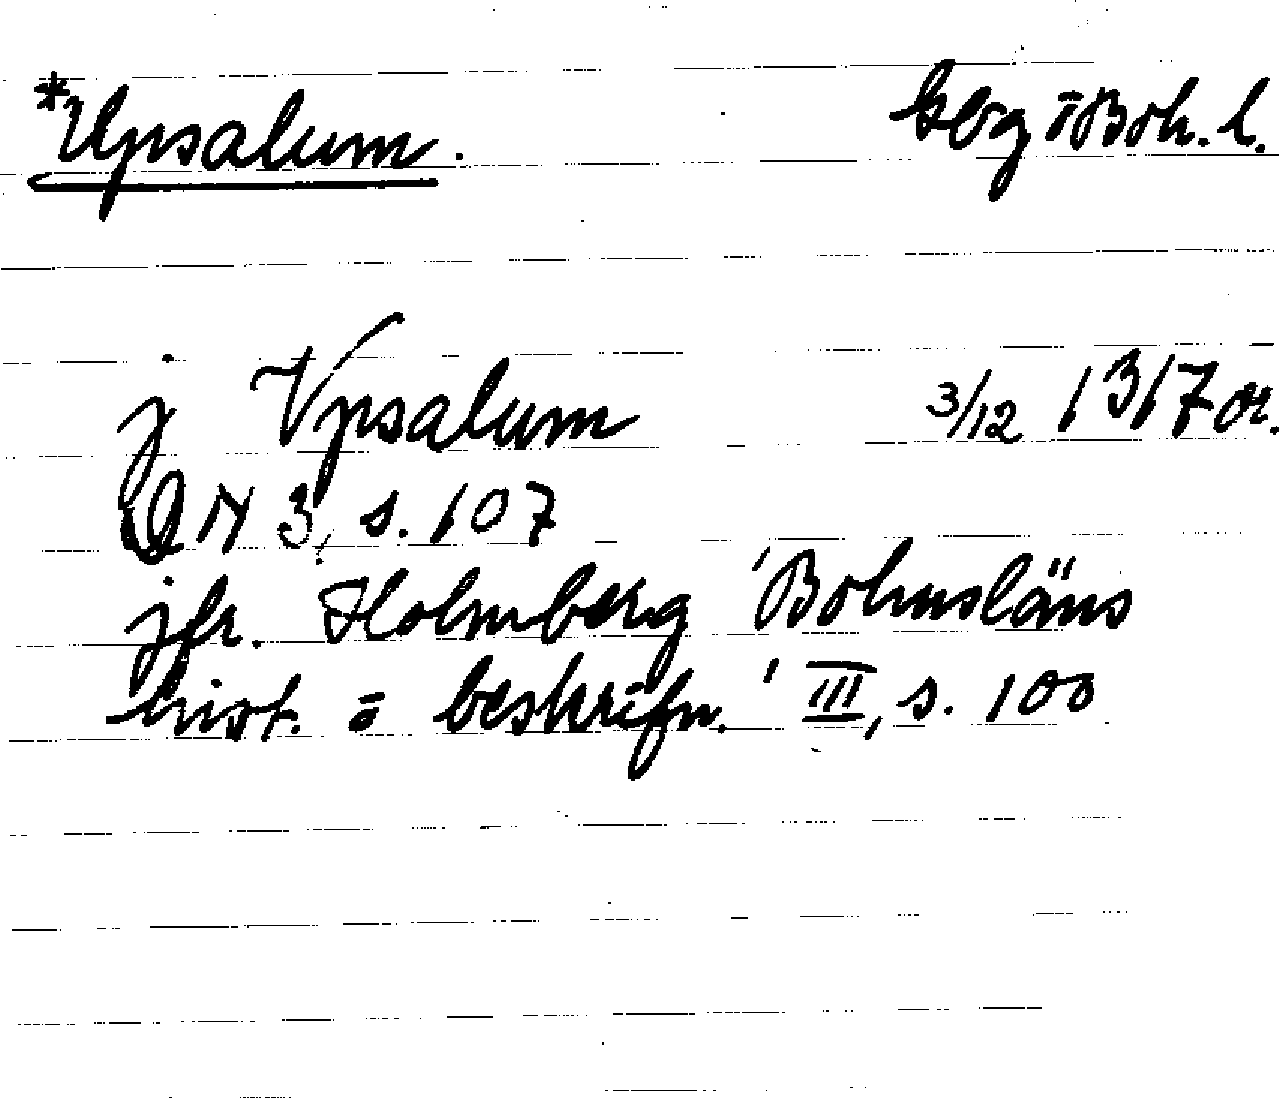 *Upsalum. berg i Boh. l.
j Vpsalum 3/12 1317 or.
DN 3, s. 107
jfr. Holmberg 'Bohusläns
hist. o beskrifn.' III, s. 100